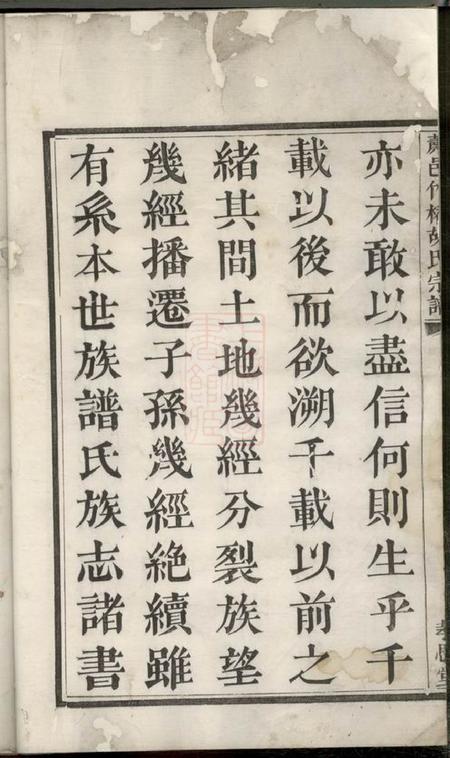 亦未敢以盡信何則生乎千
載以後而欲溯千載以前之
緒其間土地幾經分裂族望
幾經播遷子孫幾經絶續雖
有系本世族譜氏族志諸書
胡氏宗譜